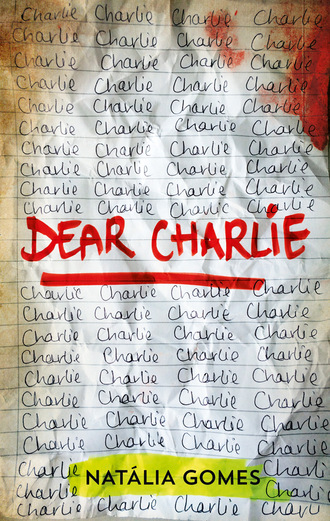 Charlie Charlie Charlie Charlie
Charlie Charlie Charlie Charlie
Charlie Charlie Charlie Charlie
Charlie Charlie Charlie Charlie
Charlie Charlie Charlie Charlie
Charlie Charlie Charlie Charlie
Charlie Charlie Charlie Charlie
Charlie Charlie Charlie Charlie
Charlie Charlie Charlie Charlie
Charlie Charlie Charlie Charlie
DEAR CHARLIE
Charlie Charlie Charlie Charlie
Charlie Charlie Charlie Charlie
Charlie Charlie Charlie Charlie
Charlie Charlie Charlie Charlie
Charlie Charlie Charlie Charlie
Charlie Charlie Charlie Charlie
Charlie Charlie Charlie Charlie
Charlie Charlie Charlie Charlie
Charlie Charlie
NATÁLIA GOMES
Charlie Charlie
Charlie Charlie Charlie Charli